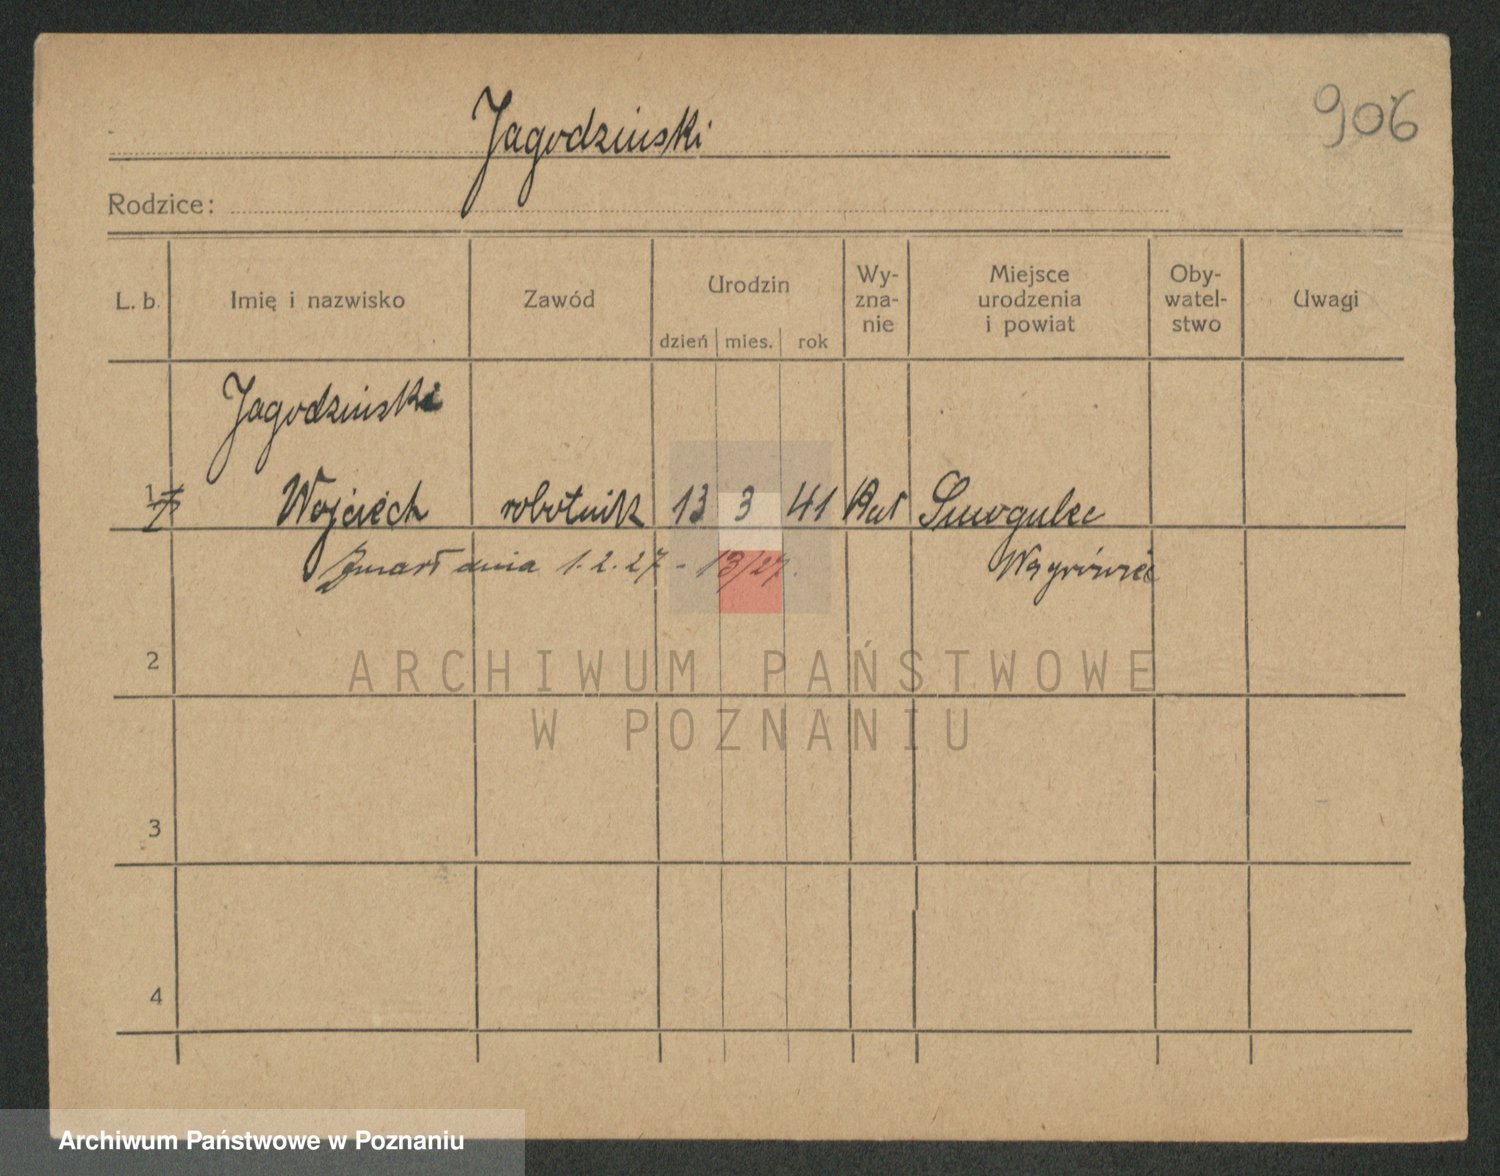 906
Jagodzinski
Rodzice:
L. b. Imię i nazwisko Zawód Urodzin dzień mies. rok Wy-zna-nie Miejsce urodzenia i powiat Oby-watel-stwo Uwagi
Jagodzinski
1 Wojciech robotnik 13 3 41 Kat Smogulec
Zmarł dnia 1.2.27 - 13/27. Wągrówiec
2
3
4
ARCHIWUM PAŃSTWOWE
W POZNANIU
Archiwum Państwowe w Poznaniu